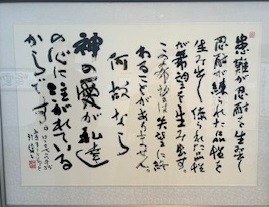 患難が忍耐を生み出し
忍耐が練られた品性を
生み出し練られた品性
が希望を生み出す
この希望は失望に終
わることがありません
何故なら
神の愛が私達
の心に注がれている
からです